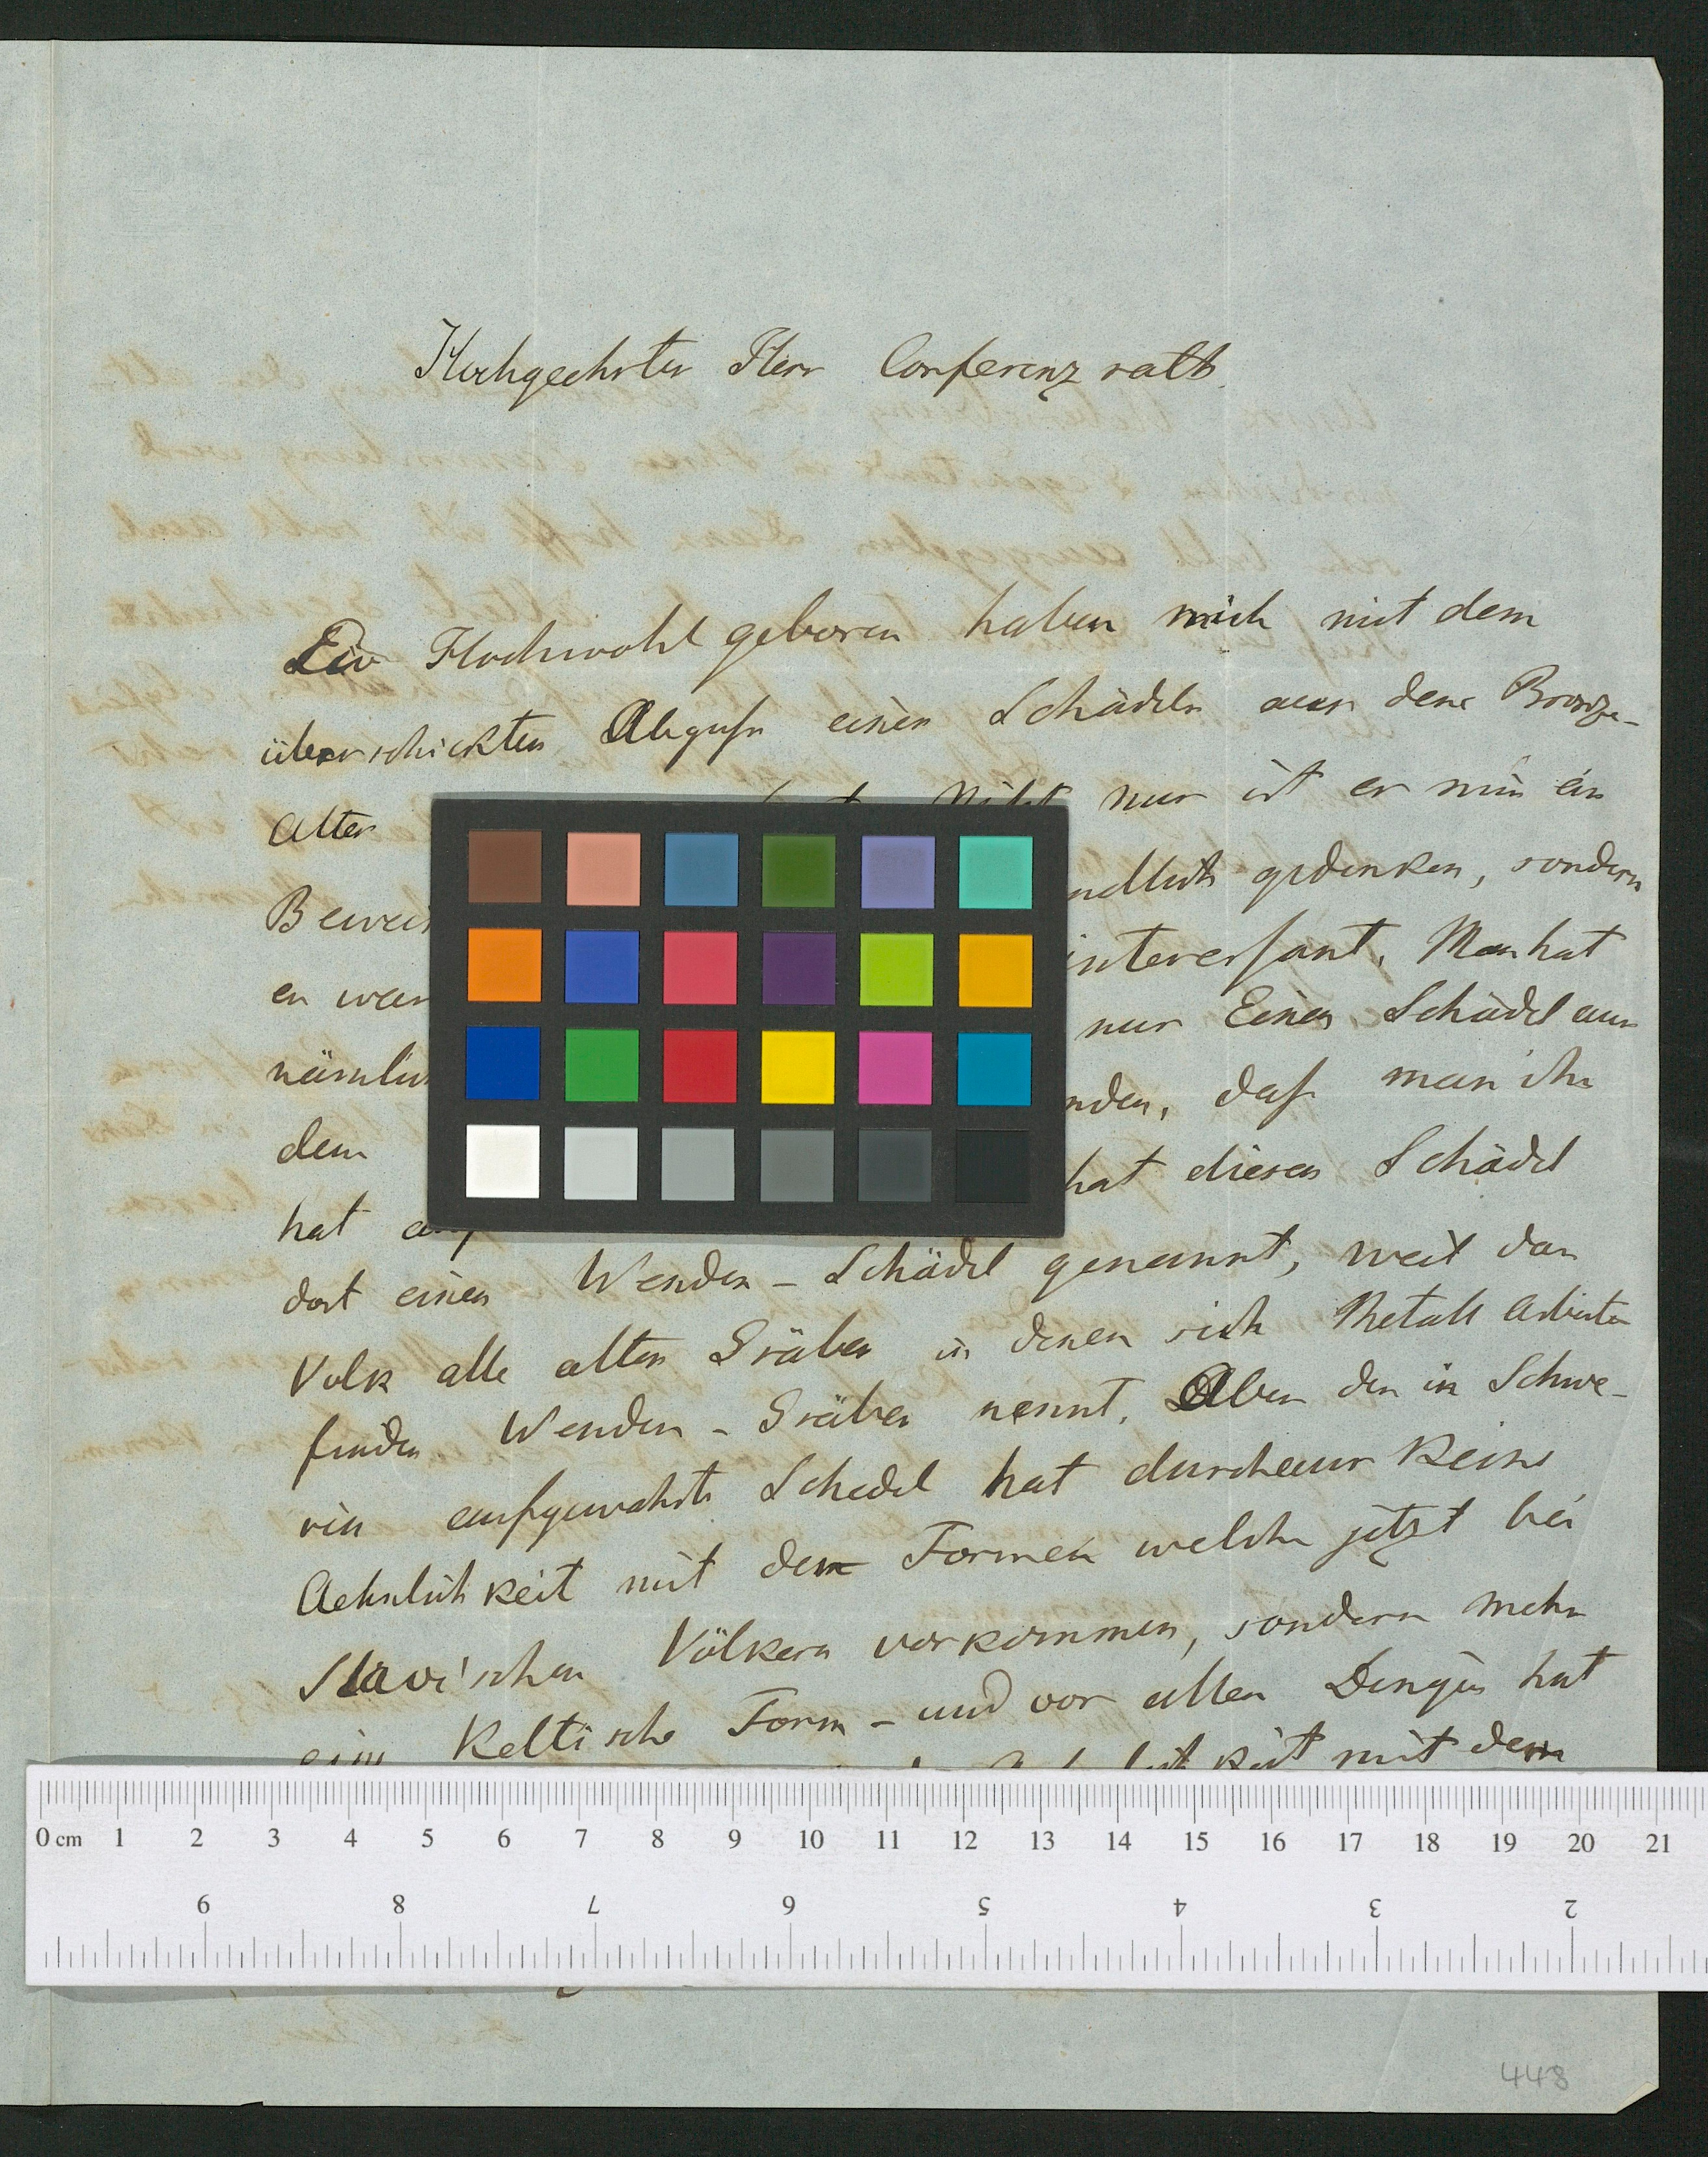 Hochgeehrter Herr Conferenzrath
Ew Hochwohlgeboren haben mich mit dem
überschickten Abguss eines Schädels aus dem Bronze-
Alter nicht nur ist er mir ein
Beweis gedenken, sondern
er war interessant. Man hat
nämlich nur Einen Schädel aus
dem daß man ihn
hat hat diesen Schädel
dort einen Wenden-Schädel genannt, weil das
Volk alle alten Gräber in denen sich Metall Arbeiten
finden Wenden-Gräber nennt. Aber der in Schwe-
rin aufgewahrte Schedel hat durchaus keine
Aehnlichkeit mit den Formen welche jetzt bei
Slavischen Völkern vorkommen, sondern mehr
eine Keltische Form – und vor allen Dingen hat
mit dem
0 cm 1 2 3 4 5 6 7 8 9 10 11 12 13 14 15 16 17 18 19 20 21
9 8 7 6 5 4 3 2
448